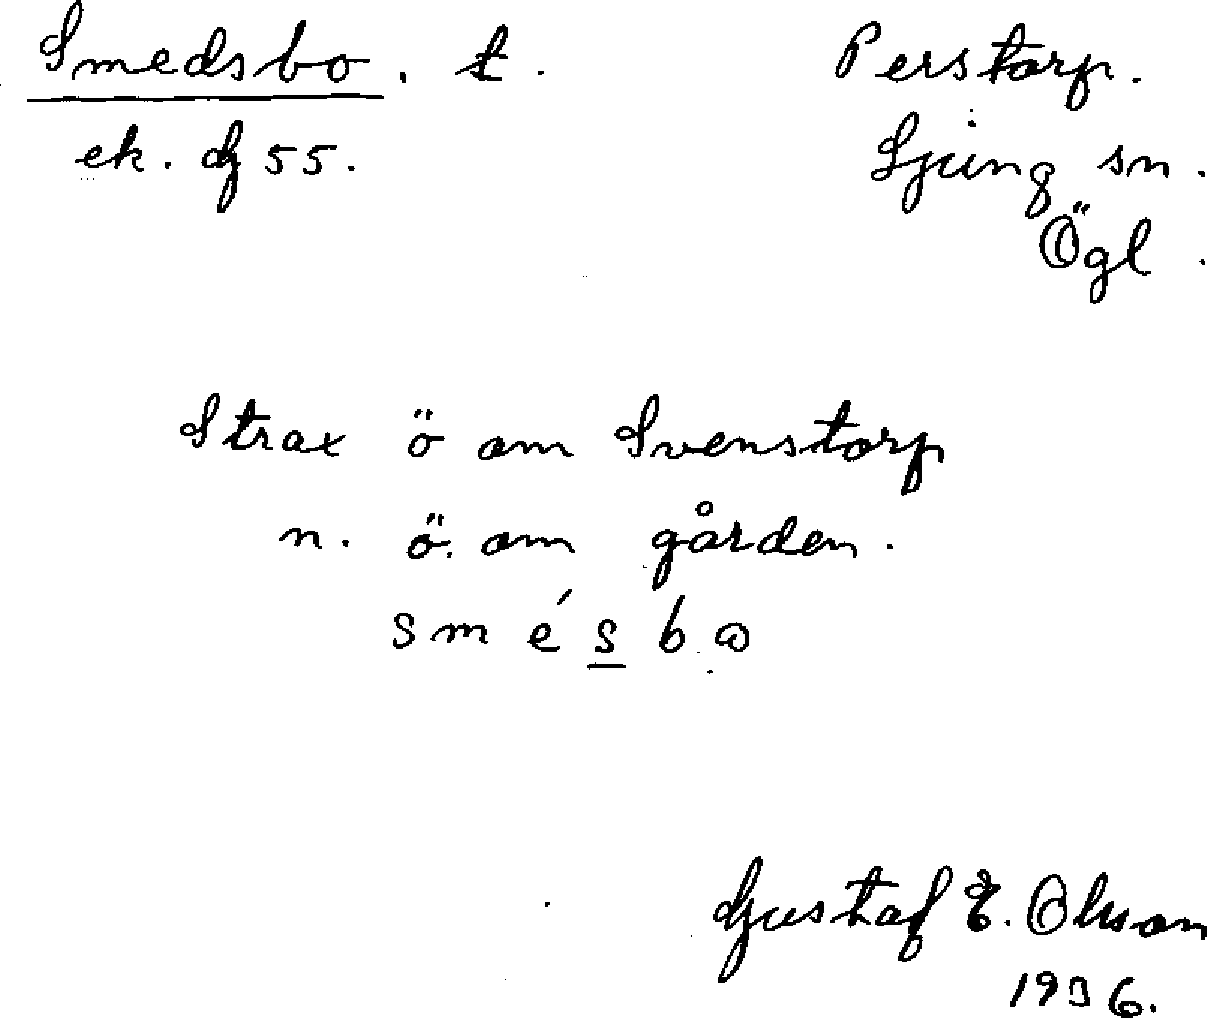 Smedsbo. t. Perstorp.
ek. G 55. Ljung sn.
Ögl.
Strax ö om Svenstorp
n. ö. om gården.
smésbω
Gustaf E. Olson
1936.